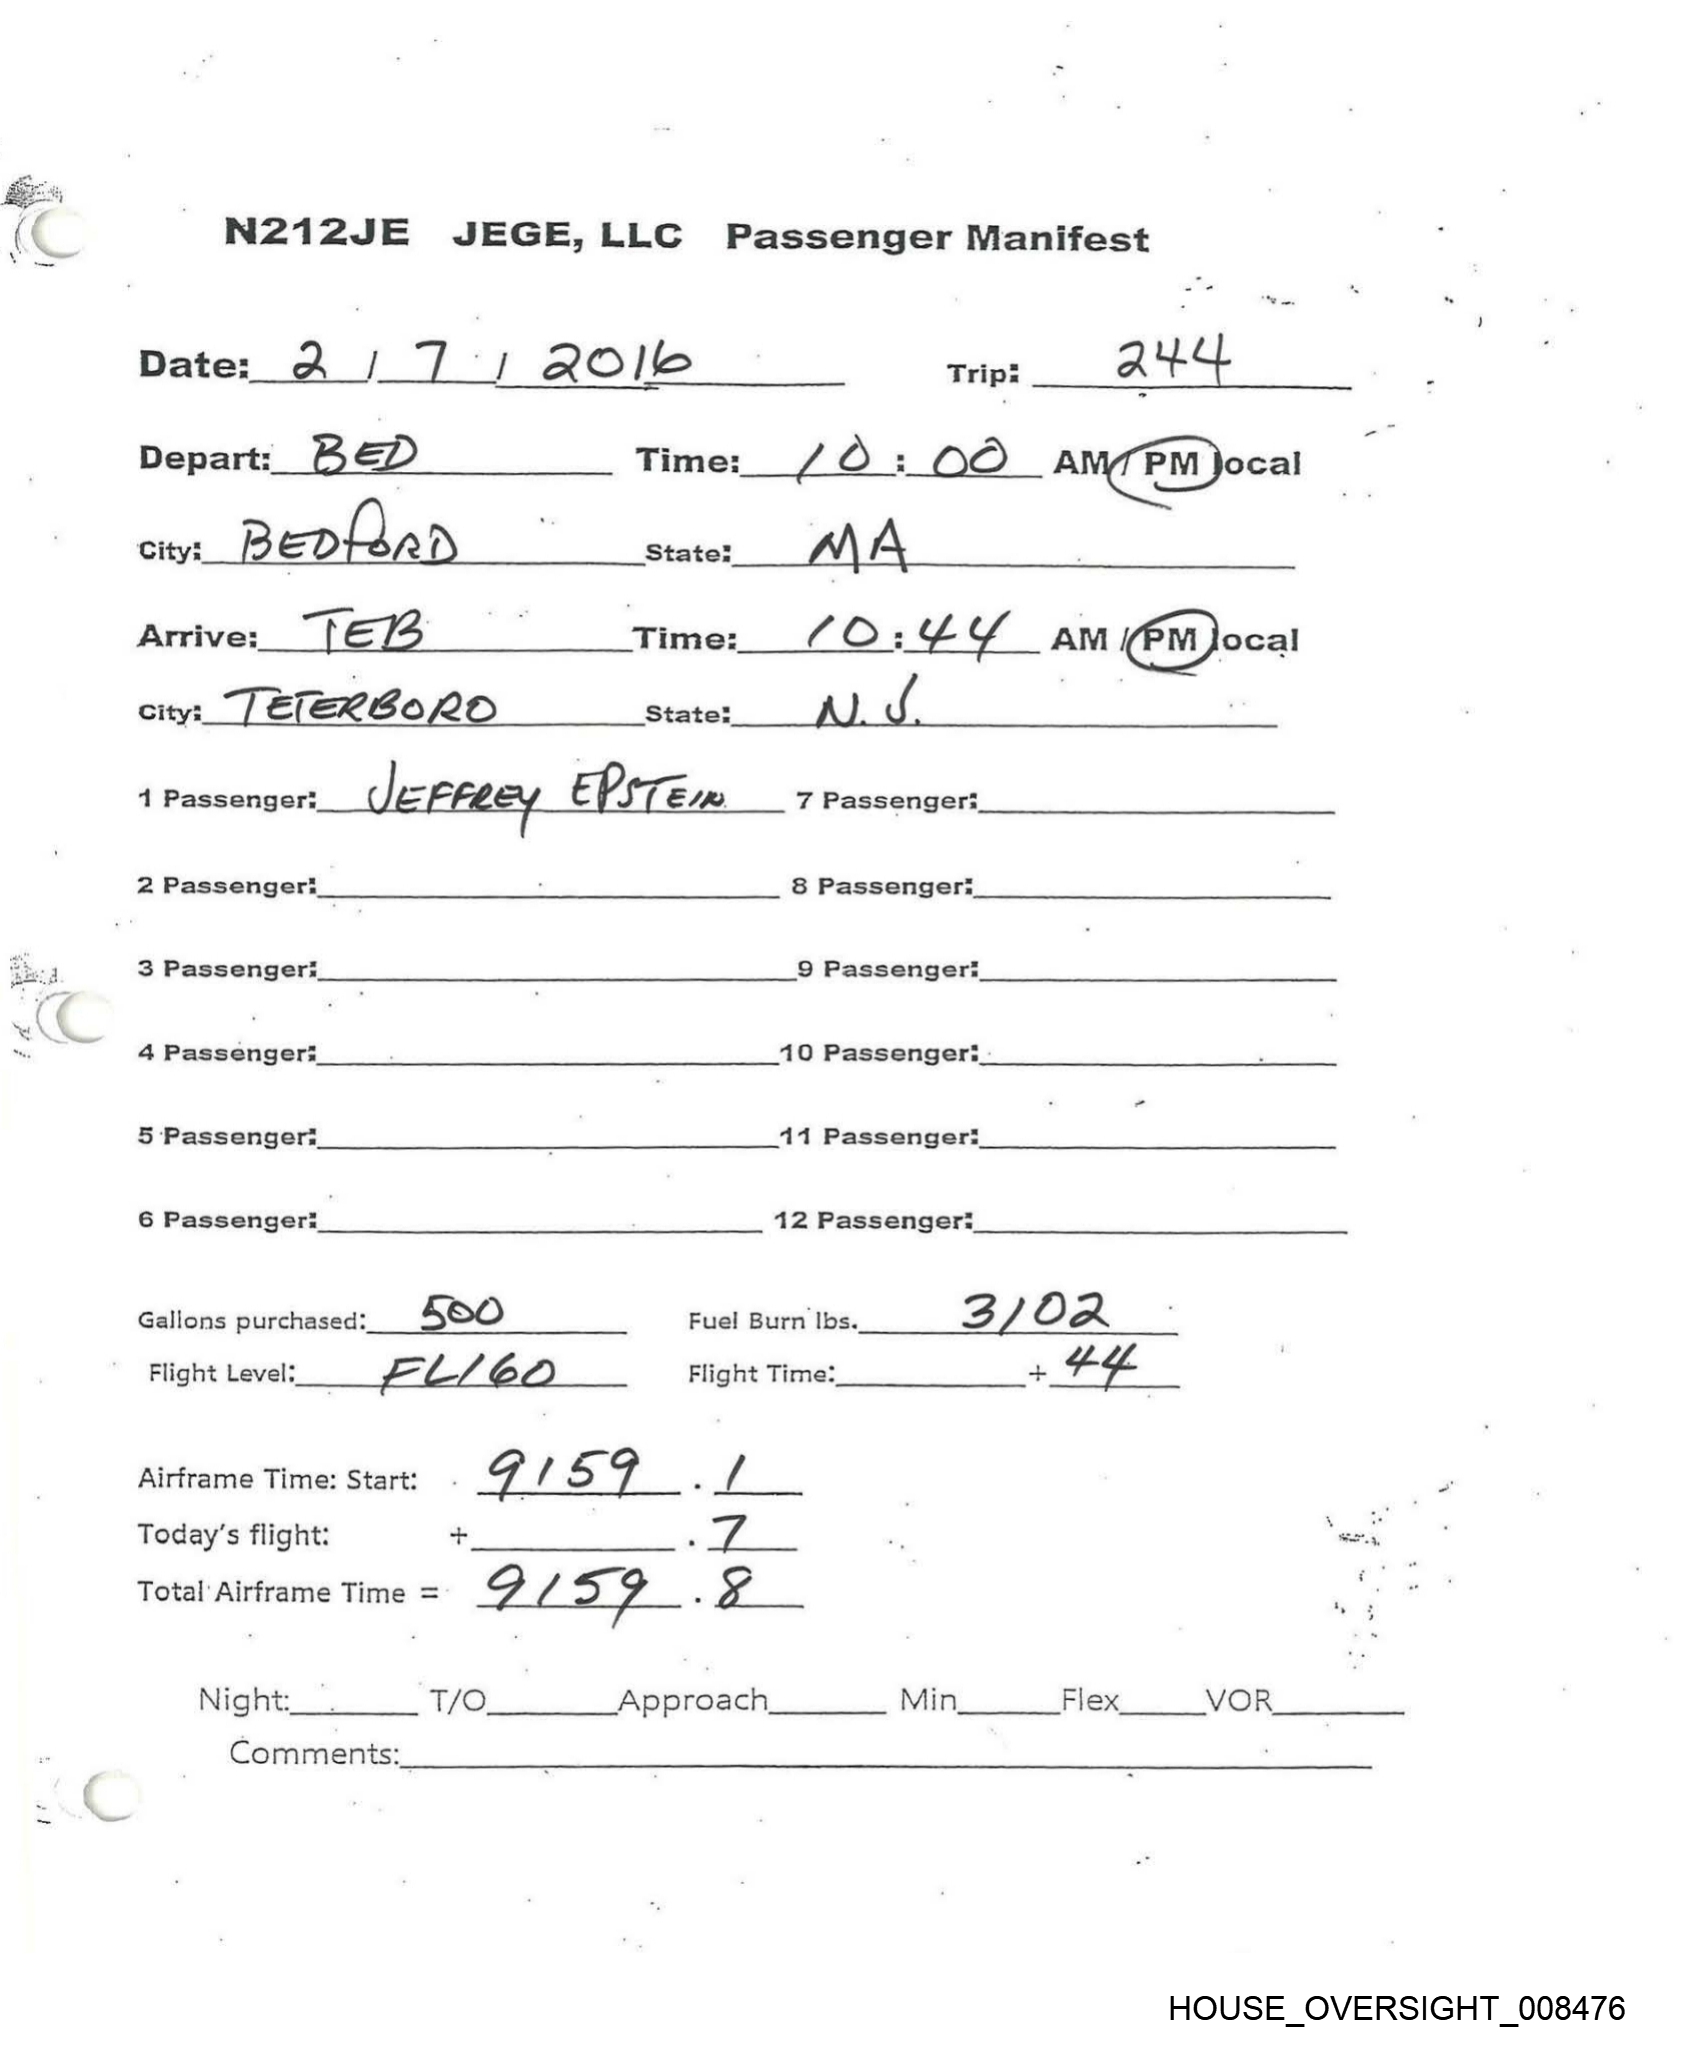 N212JE JEGE, LLC Passenger Manifest
Date: 2 / 7 / 2016 Trip: 244
Depart: BED Time: 10:00 AM / PM local
City: BEDFORD State: MA
Arrive: TEB Time: 10:44 AM / PM local
City: TETERBORO State: N.J.
1 Passenger: JEFFREY EPSTEIN 7 Passenger:
2 Passenger: 8 Passenger:
3 Passenger: 9 Passenger:
4 Passenger: 10 Passenger:
5 Passenger: 11 Passenger:
6 Passenger: 12 Passenger:
Gallons purchased: 500 Fuel Burn lbs. 3102
Flight Level: FL160 Flight Time: + 44
Airframe Time: Start: 9159 . 1
Today's flight: + . 7
Total Airframe Time = 9159 . 8
Night: T/O Approach Min Flex VOR
Comments:
HOUSE_OVERSIGHT_008476